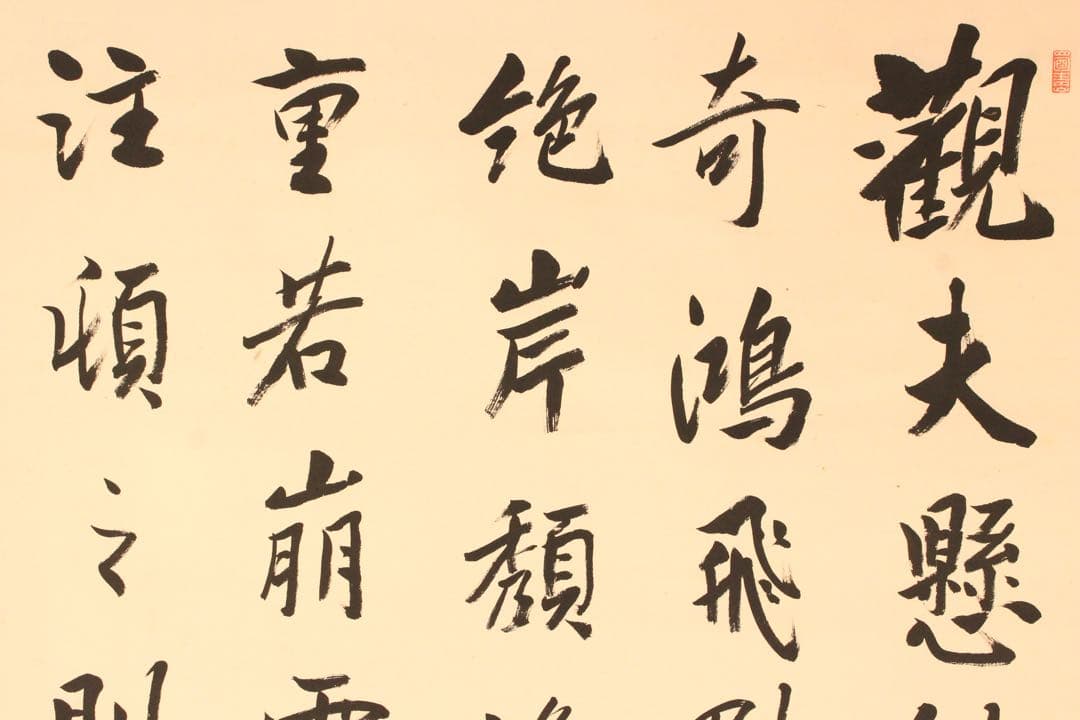 觀夫懸
奇鴻飛
絕岸頹
重若崩雲
注頓之則